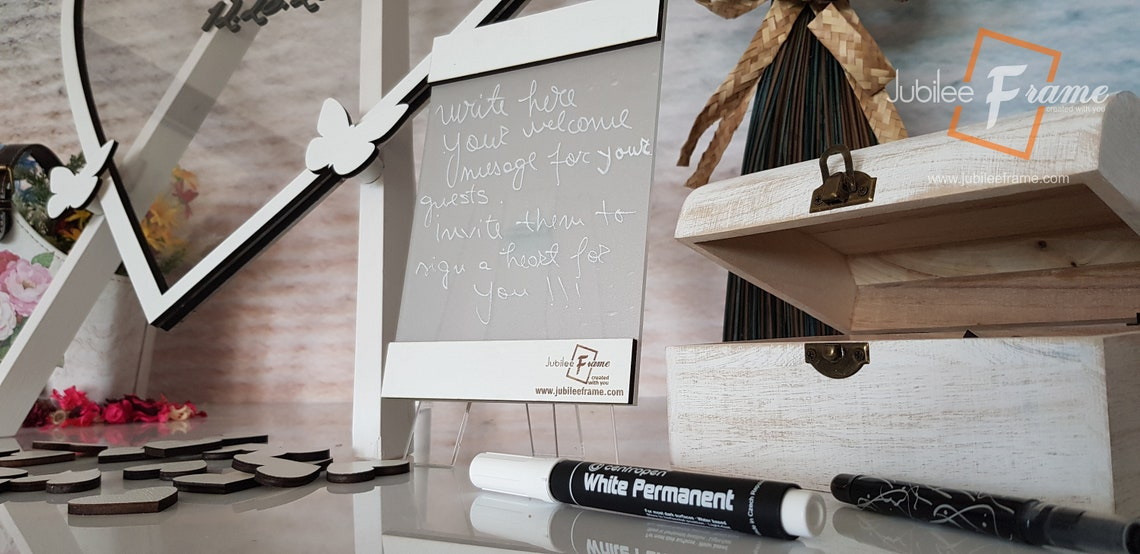 write here
your welcome
message for your
guests.
invite them to
sign a heart for
you !!!
Jubilee Frame
created
with you
www.jubileeframe.com
centropen
White Permanent
for most dark surfaces · Water based
Jubilee Frame
created with you
www.jubileeframe.com